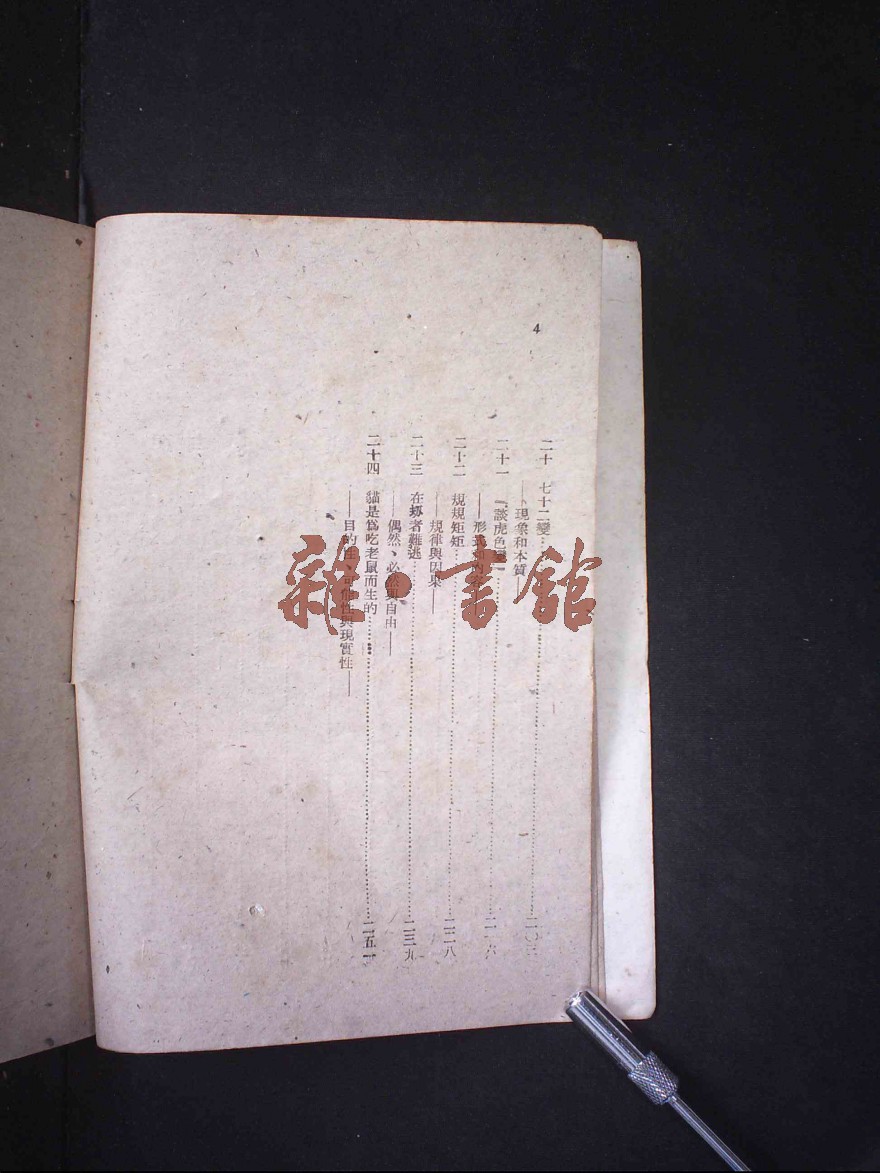 4
二十　七十二變……
——現象和本質——
二十一　『談虎色變』……二一六
——形式和內容——
二十二　規規矩矩……二二八
——規律與因果——
二十三　在劫者難逃……二三九
——偶然、必然與自由——
二十四　貓是爲吃老鼠而生的……二五一
——目的性、可能性與現實性——
雜·書館